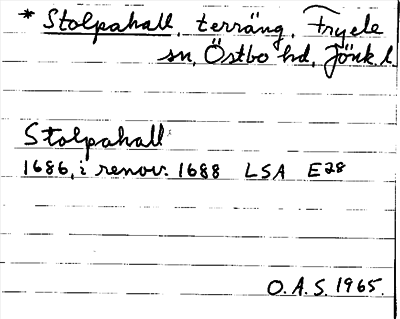 * Stolpahall, terräng, Fryele
sn, Östbo hd, Jönk l.
Stolpahall
1686, i renov. 1688 LSA E28
O.A.S. 1965.